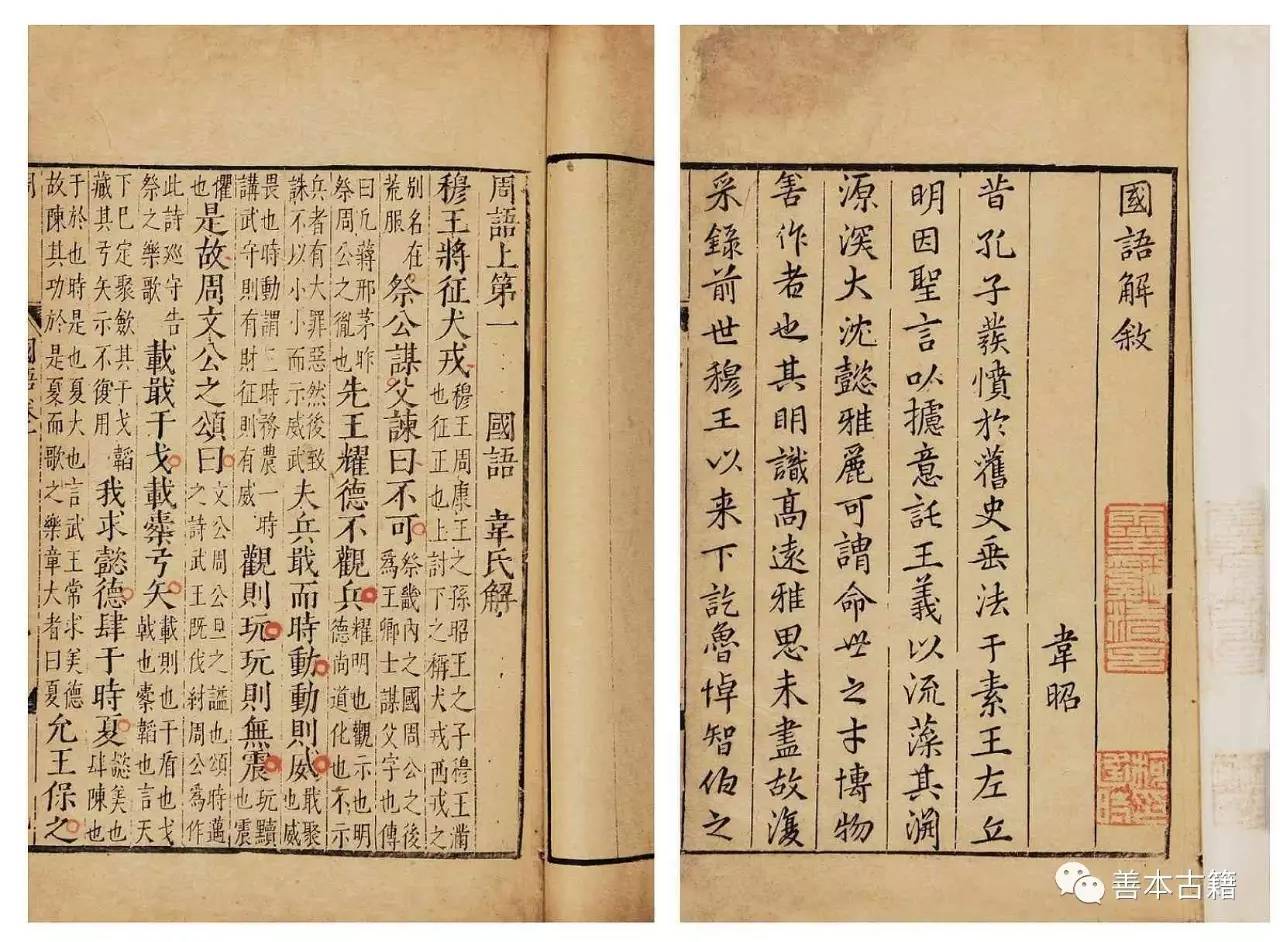 國語解敘
韋昭
昔孔子發憤於舊史垂法于素王左丘
明因聖言以攄意託王義以流藻其淵
源深大沈懿雅麗可謂命世之才博物
善作者也其明識高遠雅思未盡故復
采錄前世穆王以来下訖魯悼智伯之
周語上第一 國語 韋氏解
穆王將征犬戎穆王周康王之孫昭王之子穆王滿也征正也上討下之稱犬戎西戎之
別名在荒服祭公謀父諫曰不可祭畿內之國周公之後爲王卿士謀父字也傳
曰凡蔣邢茅胙祭周公之胤也先王耀德不觀兵耀明也觀示也明德尚道化也不示
兵者有大罪惡然後致誅不以小小而示威武夫兵戢而時動動則威戢聚也威
畏也時動謂三時務農一時講武守則有財征則有威觀則玩玩則無震玩黷也震
懼也是故周文公之頌曰文公周公旦之謚也頌時邁之詩武王既伐紂周公爲作
此詩巡守告祭之樂歌載戢干戈載櫜弓矢載則也干盾也戈戟也櫜韜也言天
下已定聚斂其干戈韜藏其弓矢示不復用我求懿德肆于時夏懿美也肆陳也
于於也時是也夏大也言武王常求美德故陳其功於是夏而歌之樂章大者曰夏允王保之
善本古籍